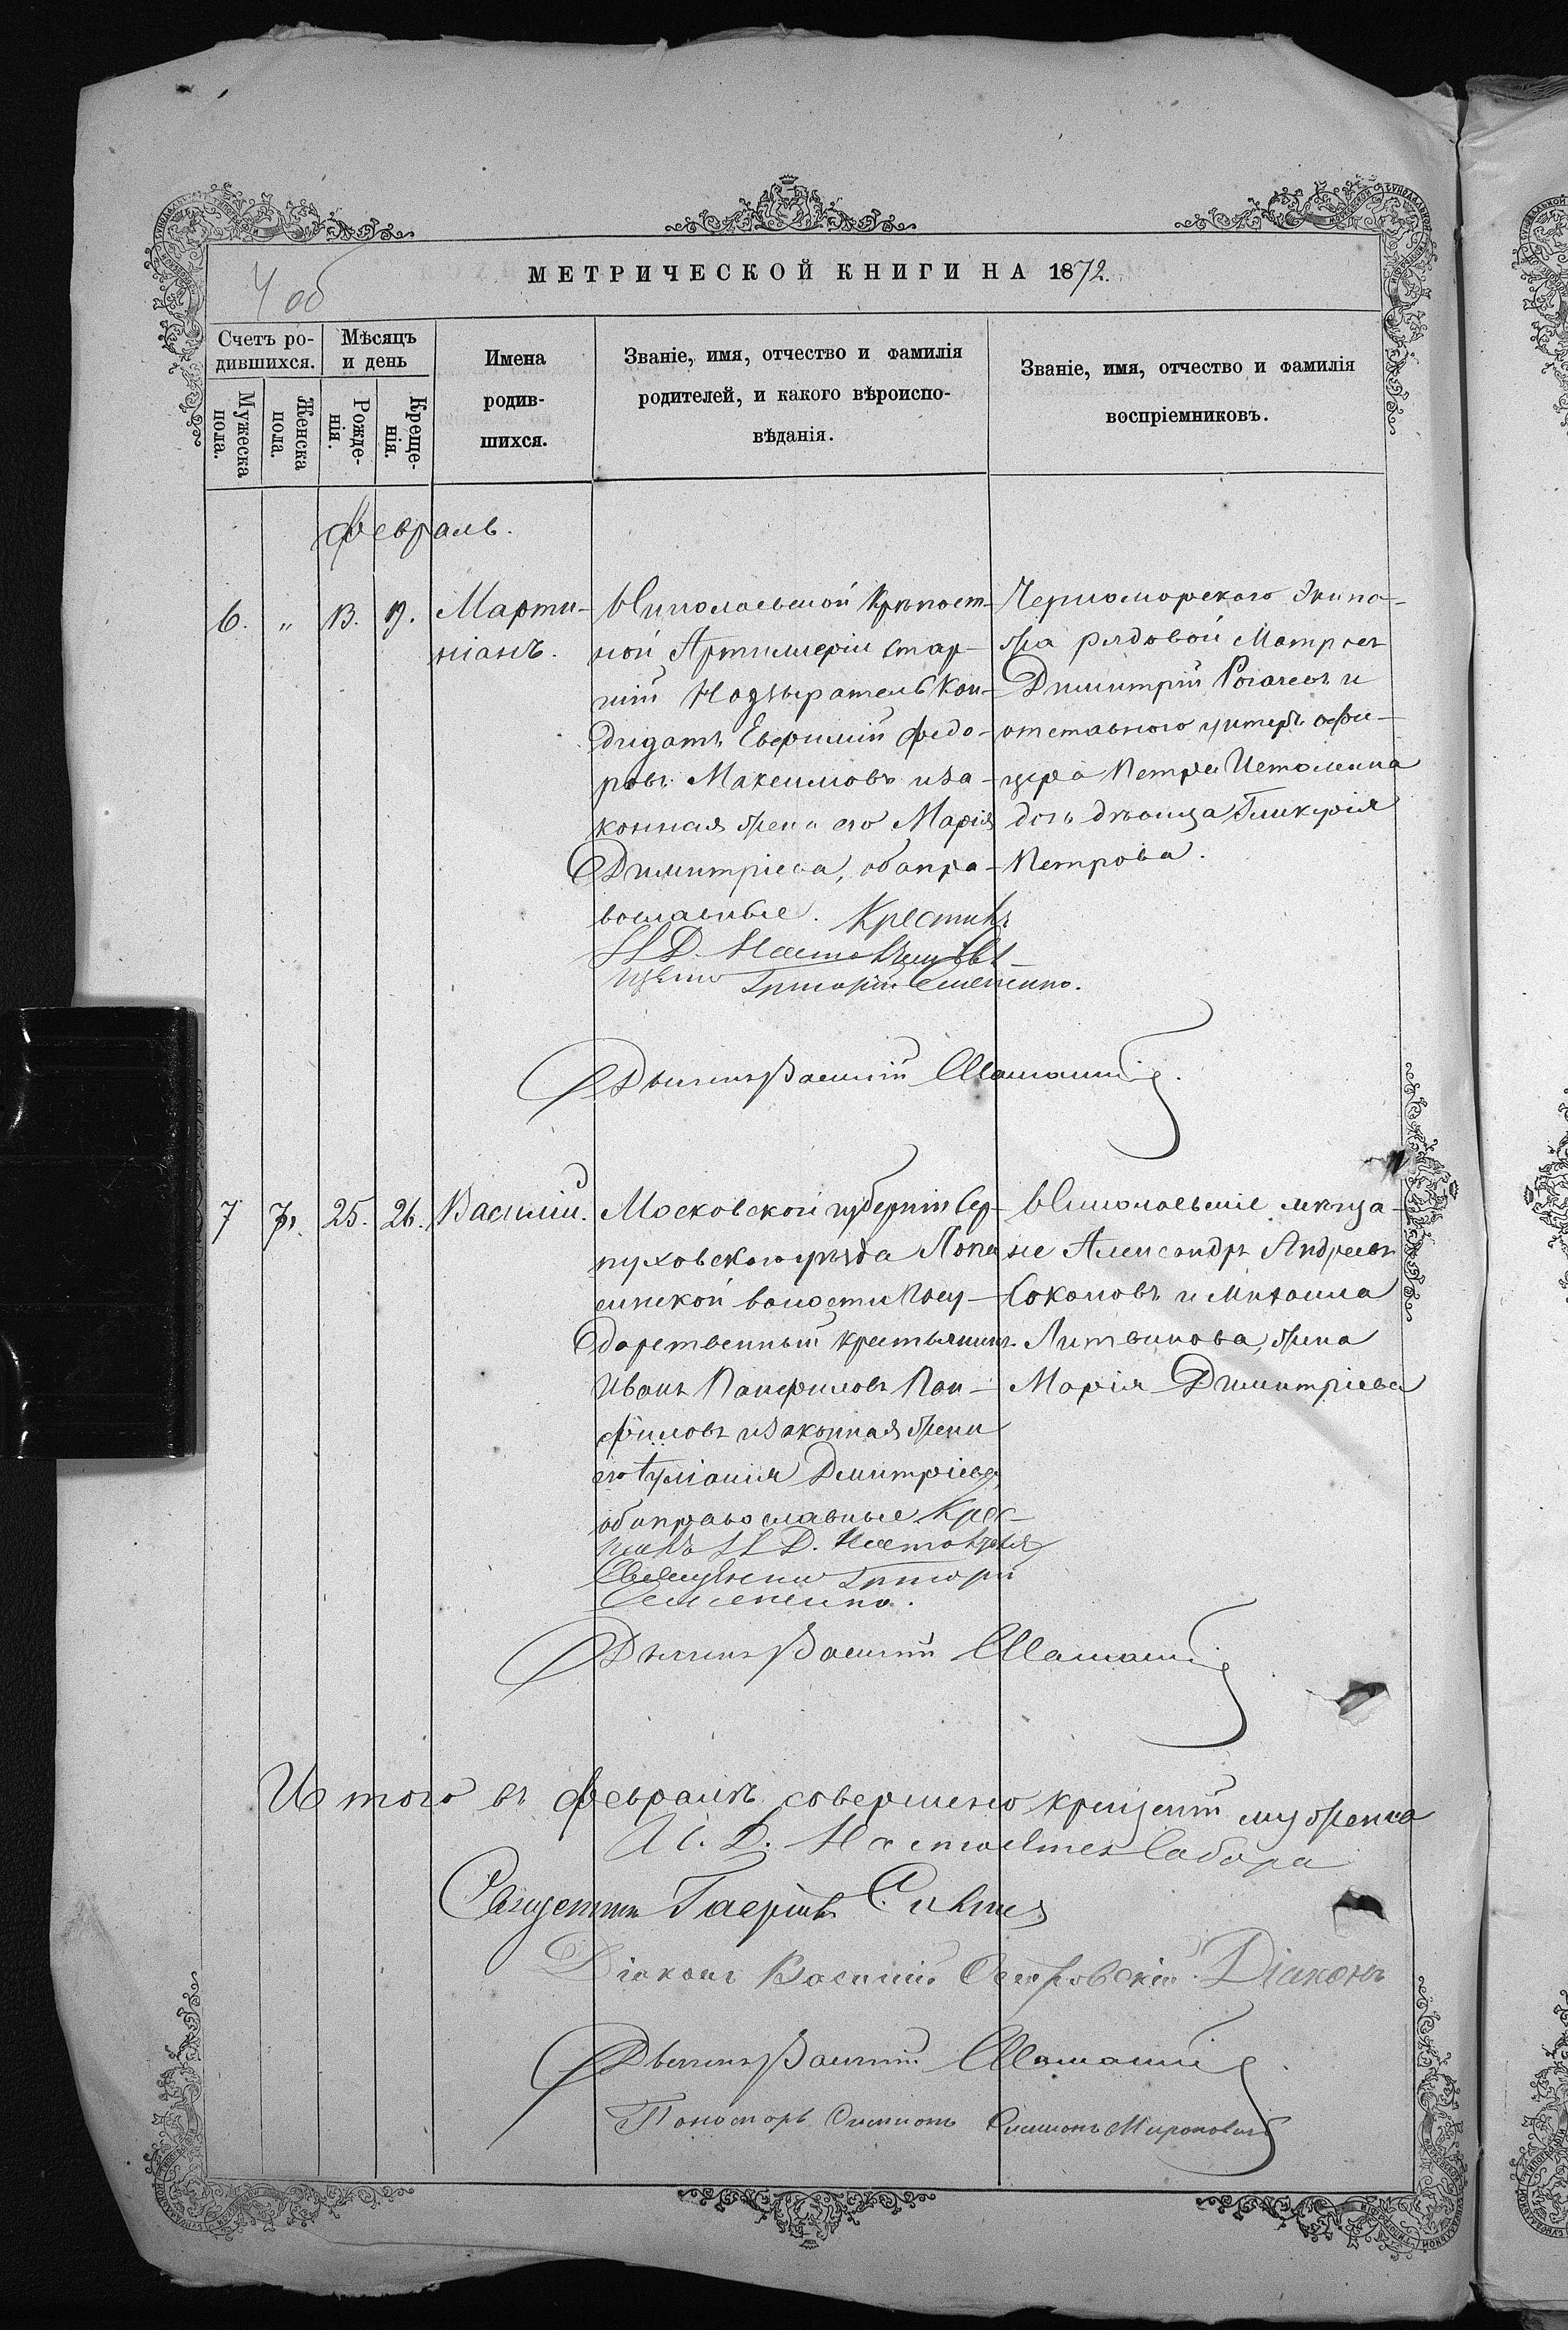 4 об
МЕТРИЧЕСКОЙ КНИГИ НА 1872.
Счетъ ро-
дившихся.
Мѣсяцъ
и день
Мужеска
пола.
Женска
пола.
Рожде-
нія.
Креще-
нія.
Имена
родив-
шихся.
Званіе, имя, отчество и фамилія
родителей, и какого вѣроиспо-
вѣданія.
Званіе, имя, отчество и фамилія
воспріемниковъ.
Февраль.
6. „ 13. 19. Марти-
ніанъ.
Николаевской Крѣпост-
ной Артиллеріи Стар-
шій Надзиратель Кан-
дидатъ Евфимій Федо-
ровъ Максимовъ и за-
конная жена его Марія
Димитріева, оба пра-
вославные. Крестилъ
И. Д. Настоятеля Свя-
щенн Григорій Семенко.
Черноморского Экипа-
жа рядовой Матросъ
Димитрій Рогачевъ и
отставного унтеръ офи-
цера Петра Истомина
дочь дѣвица Гликерія
Петрова.
Дьячекъ Василій
7 „ 25. 26. Василій.
Московской губерніи Сер-
пуховского уѣзда Лопа
синской волости Госу-
дарственный крестьянинъ
Иванъ Панфиловъ Пан-
филовъ и законная жена
его Іуліанія Димитріева,
оба православные. Крес-
тилъ И. Д. Настоятеля
Священникъ Григорій
Семенко.
Николаевшіе мѣща-
не Александръ Андреевъ
Соколовъ и Михаила
Литвинова, жена
Марія Димитріева
Дьячекъ Василій
Итого въ Февралѣ совершено крещеній муж пола
И. Д. Настоятеля Собора
Священникъ Гавріилъ
Діаконъ Василій Островскій. Діаконъ
Дьячекъ Василій
Пономарь Симеонъ Симеонъ Мироновичъ